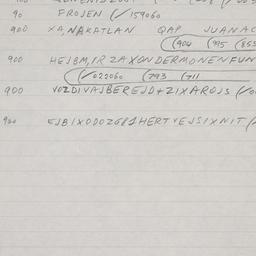 90 FROJEN (✓159060
900 XA,NAKATLAN QAP JUANAC
(904 (995 (855
900 HEJBM,IRZAXONDERMONENFUN
(✓022060 (793 (711
900 VOZDIVAJBEREJD+ZIXAROJS (✓0
900 EJBIXODOZGL1HERTVEJSIXNIT